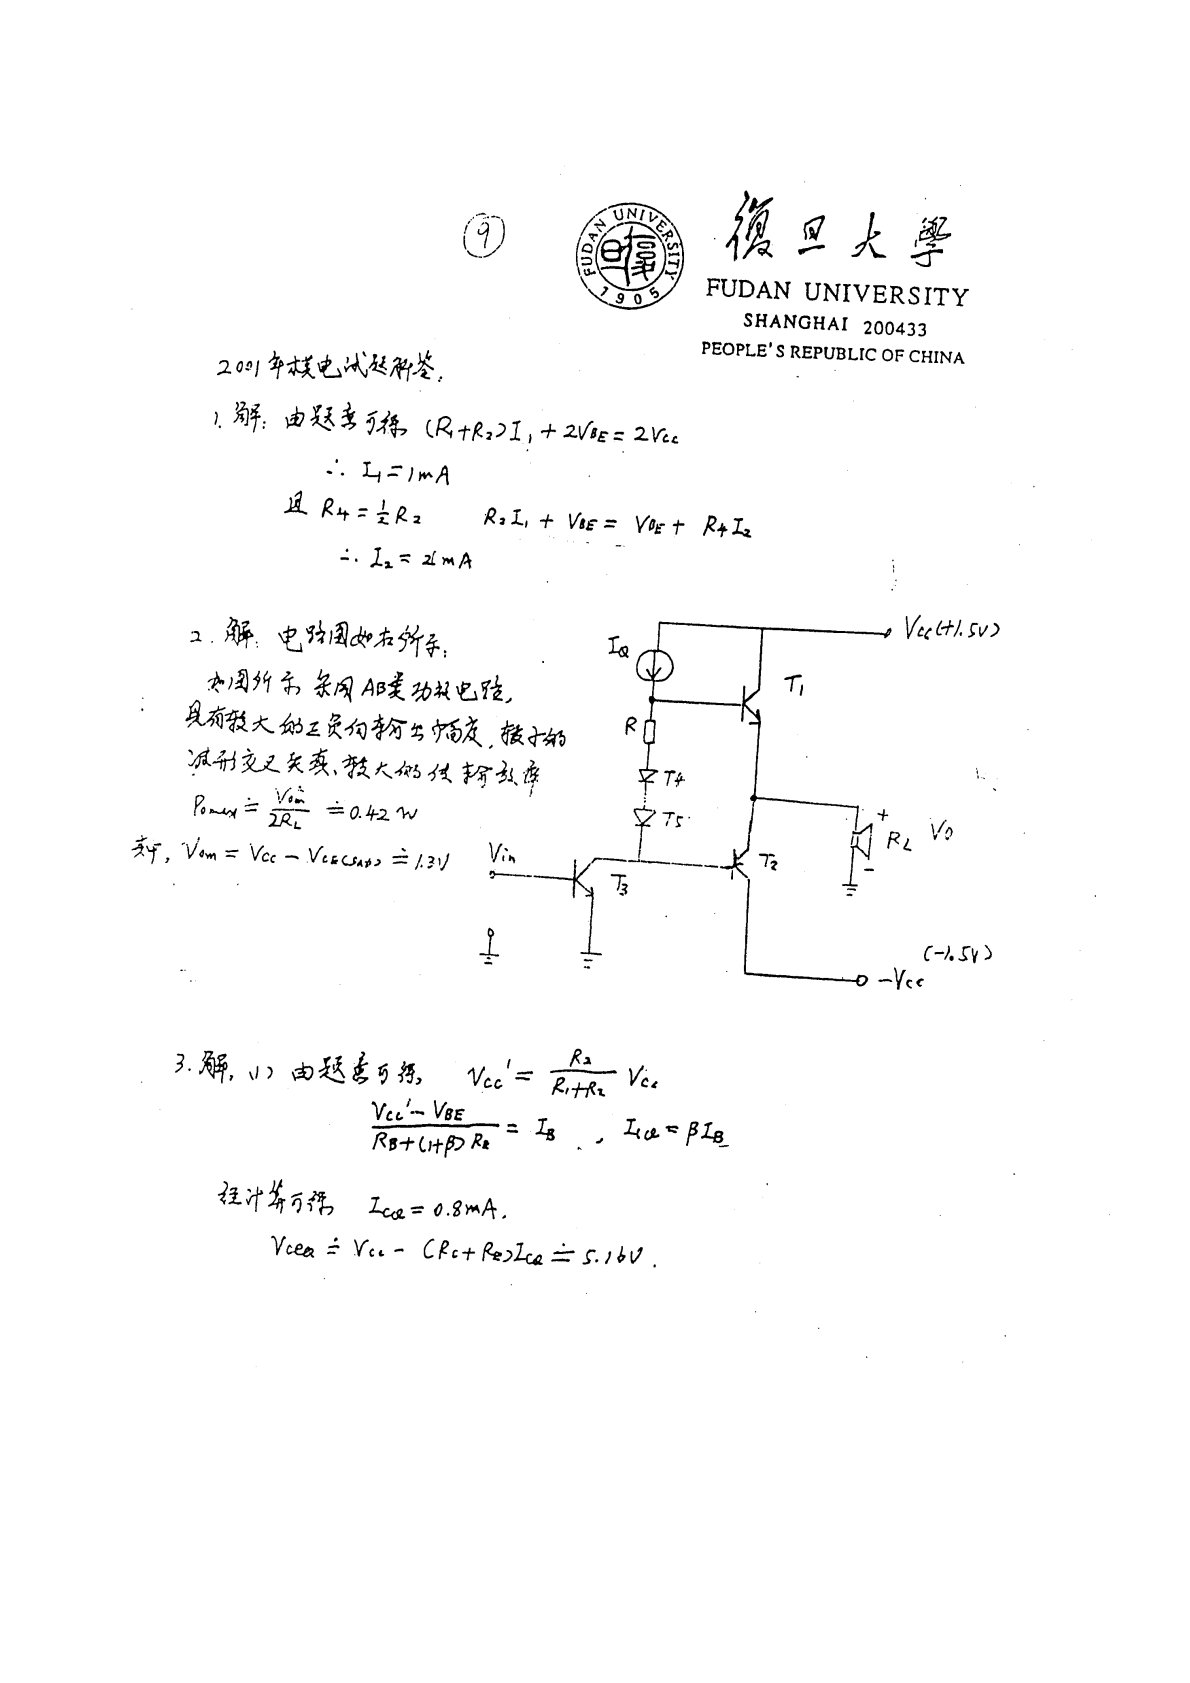 9
FUDAN UNIVERSITY
1905
復旦大學
FUDAN UNIVERSITY
SHANGHAI 200433
PEOPLE'S REPUBLIC OF CHINA
2001年模电试题解答.
1. 解: 由题意可得 (R₁+R₂)I₁+2VBE=2Vcc
∴ I₁=1mA
且 R₄=½R₂ R₂I₁+VBE=VBE+R₄I₂
∴ I₂=2mA
2. 解: 电路图如右所示:
如图所示, 采用AB类功放电路,
具有较大的正负向输出幅度, 较小的
波形交叉失真, 较大的传输效率
Pomax≐Vom²/2RL≐0.42W
其中, Vom=Vcc-VCE(sat)≐1.3V
Vcc(+1.5V)
IQ
T₁
R
T4
T5
+
RL
Vo
-
Vin
T₃
T₂
(-1.5V)
-Vcc
3. 解, (1) 由题意可得, Vcc'=R₂/(R₁+R₂) Vcc
(Vcc'-VBE)/(RB+(1+β)RE)=IB , ICQ=βIB
经计算可得, ICQ=0.8mA.
VCEQ≐Vcc-(Rc+RE)ICQ≐5.16V.